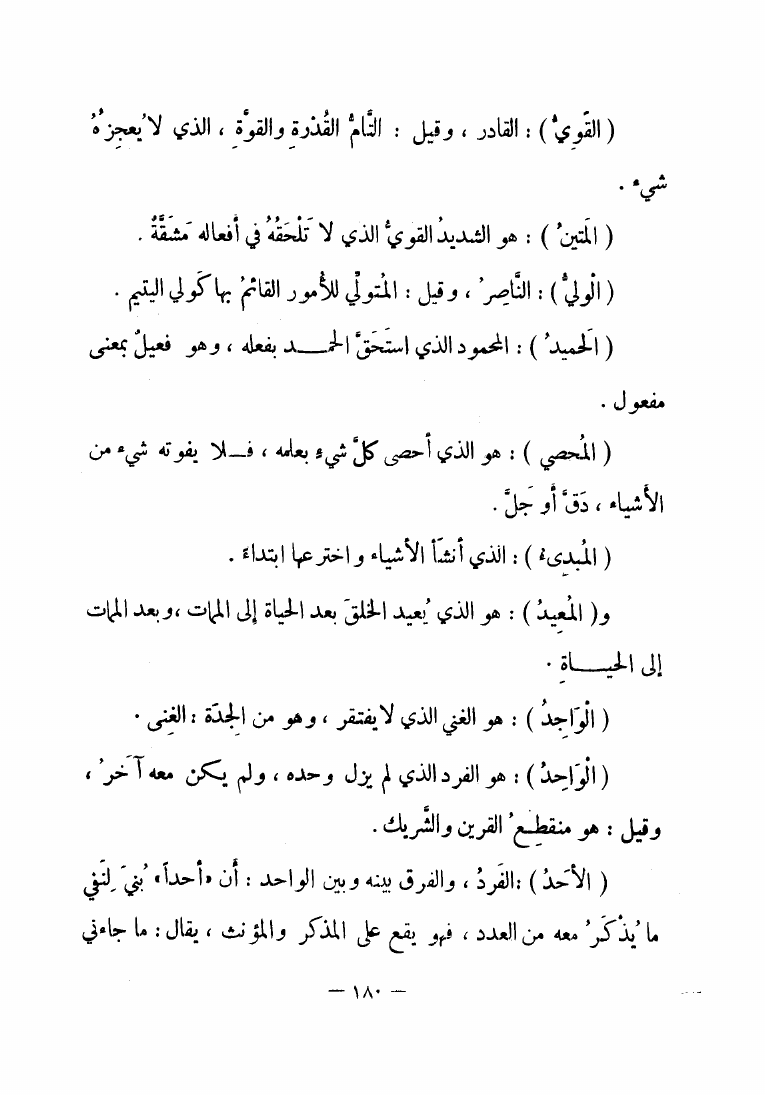 ( القَوِيُّ ) : القادر ، وقيل : التَّامُّ القُدْرةِ والقوَّةِ ، الذي لا يُعجِزُهُ
شيء .
( المَتينُ ) : هو الشديدُ القويُّ الذي لا تَلْحَقُهُ في أفعاله مَشَقَّةٌ .
( الْوليُّ ) : النَّاصِرُ ، وقيل : المُتولِّي للأمور القائمُ بها كَولي اليتيم .
( الَحميدُ ) : المحمود الذي استَحَقَّ الحمد بفعله ، وهو فعيلٌ بمعنى
مفعول .
( المُحصي ) : هو الذي أحصى كلَّ شيءٍ بعلمه ، فلا يفوته شيء من
الأشياء ، دَقَّ أو جَلَّ .
( المُبدِىءُ ) : الذي أنشَأ الأشياء واخترعها ابتداءً .
و( المُعِيدُ ) : هو الذي يُعيد الخلقَ بعد الحياة إلى الممات ، وبعد الممات
إلى الحياةِ .
( الْوَاجِدُ ) : هو الغني الذي لا يفتقر ، وهو من الجِدَة : الغِنى .
( الْوَاحِدُ ) : هو الفرد الذي لم يزل وحده ، ولم يكن معه آخَرُ ،
وقيل : هو منقطِعُ القرين والشَّريك .
( الأحَدُ ) : الفَردُ ، والفرق بينه وبين الواحد : أن «أحداً» بُنيَ لِنَفي
ما يُذْكَرُ معه من العدد ، فهو يقع على المذكر والمؤنث ، يقال : ما جاءني
— ١٨٠ —